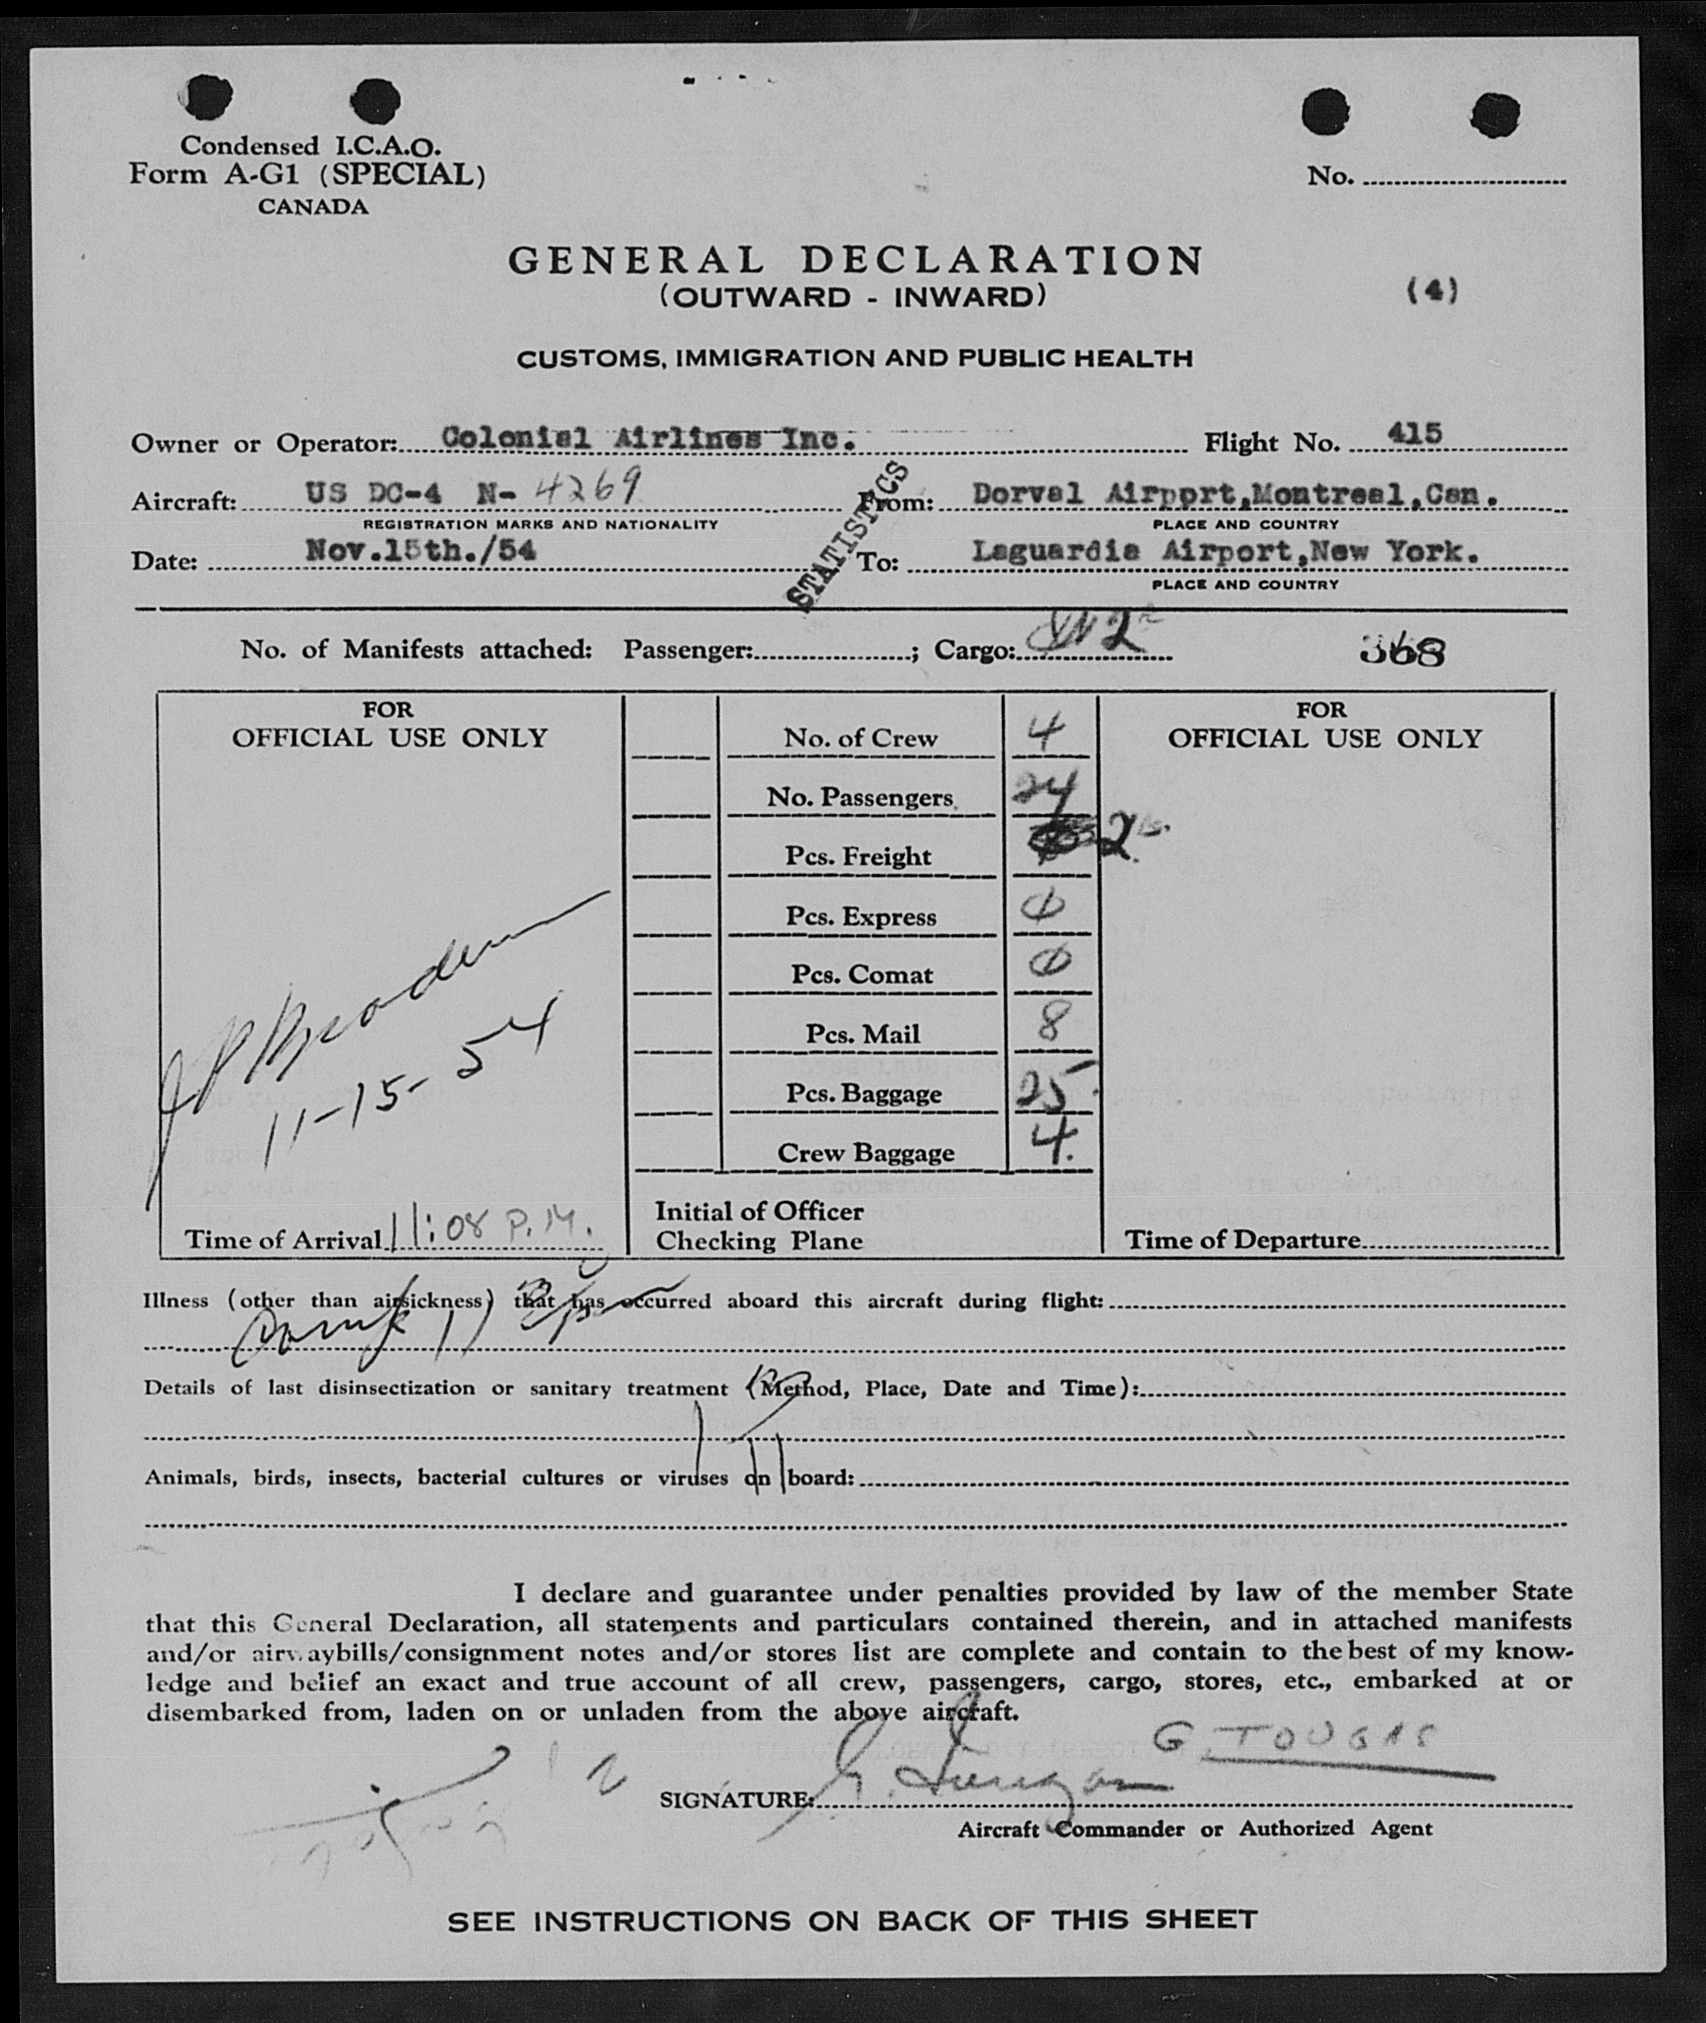 Condensed I.C.A.O.
Form A-G1 (SPECIAL)
CANADA
No.
GENERAL DECLARATION
(OUTWARD - INWARD)
(4)
CUSTOMS, IMMIGRATION AND PUBLIC HEALTH
Owner or Operator: Colonial Airlines Inc. Flight No. 415
Aircraft: US DC-4 N- 4269 From: Dorval Airport, Montreal, Can.
REGISTRATION MARKS AND NATIONALITY PLACE AND COUNTRY
STATISTICS
Date: Nov.15th./54 To: Laguardia Airport, New York.
PLACE AND COUNTRY
No. of Manifests attached: Passenger: ; Cargo: 2 368
FOR
OFFICIAL USE ONLY
No. of Crew 4
No. Passengers 24
Pcs. Freight 2
Pcs. Express 0
Pcs. Comat 0
Pcs. Mail 8
Pcs. Baggage 25
Crew Baggage 4.
FOR
OFFICIAL USE ONLY
11-15-54
Time of Arrival 11:08 P.M.
Initial of Officer
Checking Plane
Time of Departure
Illness (other than airsickness) that has occurred aboard this aircraft during flight:
Details of last disinsectization or sanitary treatment (Method, Place, Date and Time):
Animals, birds, insects, bacterial cultures or viruses on board:
I declare and guarantee under penalties provided by law of the member State
that this General Declaration, all statements and particulars contained therein, and in attached manifests
and/or airwaybills/consignment notes and/or stores list are complete and contain to the best of my know-
ledge and belief an exact and true account of all crew, passengers, cargo, stores, etc., embarked at or
disembarked from, laden on or unladen from the above aircraft.
G. TOUGAS
SIGNATURE:
Aircraft Commander or Authorized Agent
SEE INSTRUCTIONS ON BACK OF THIS SHEET